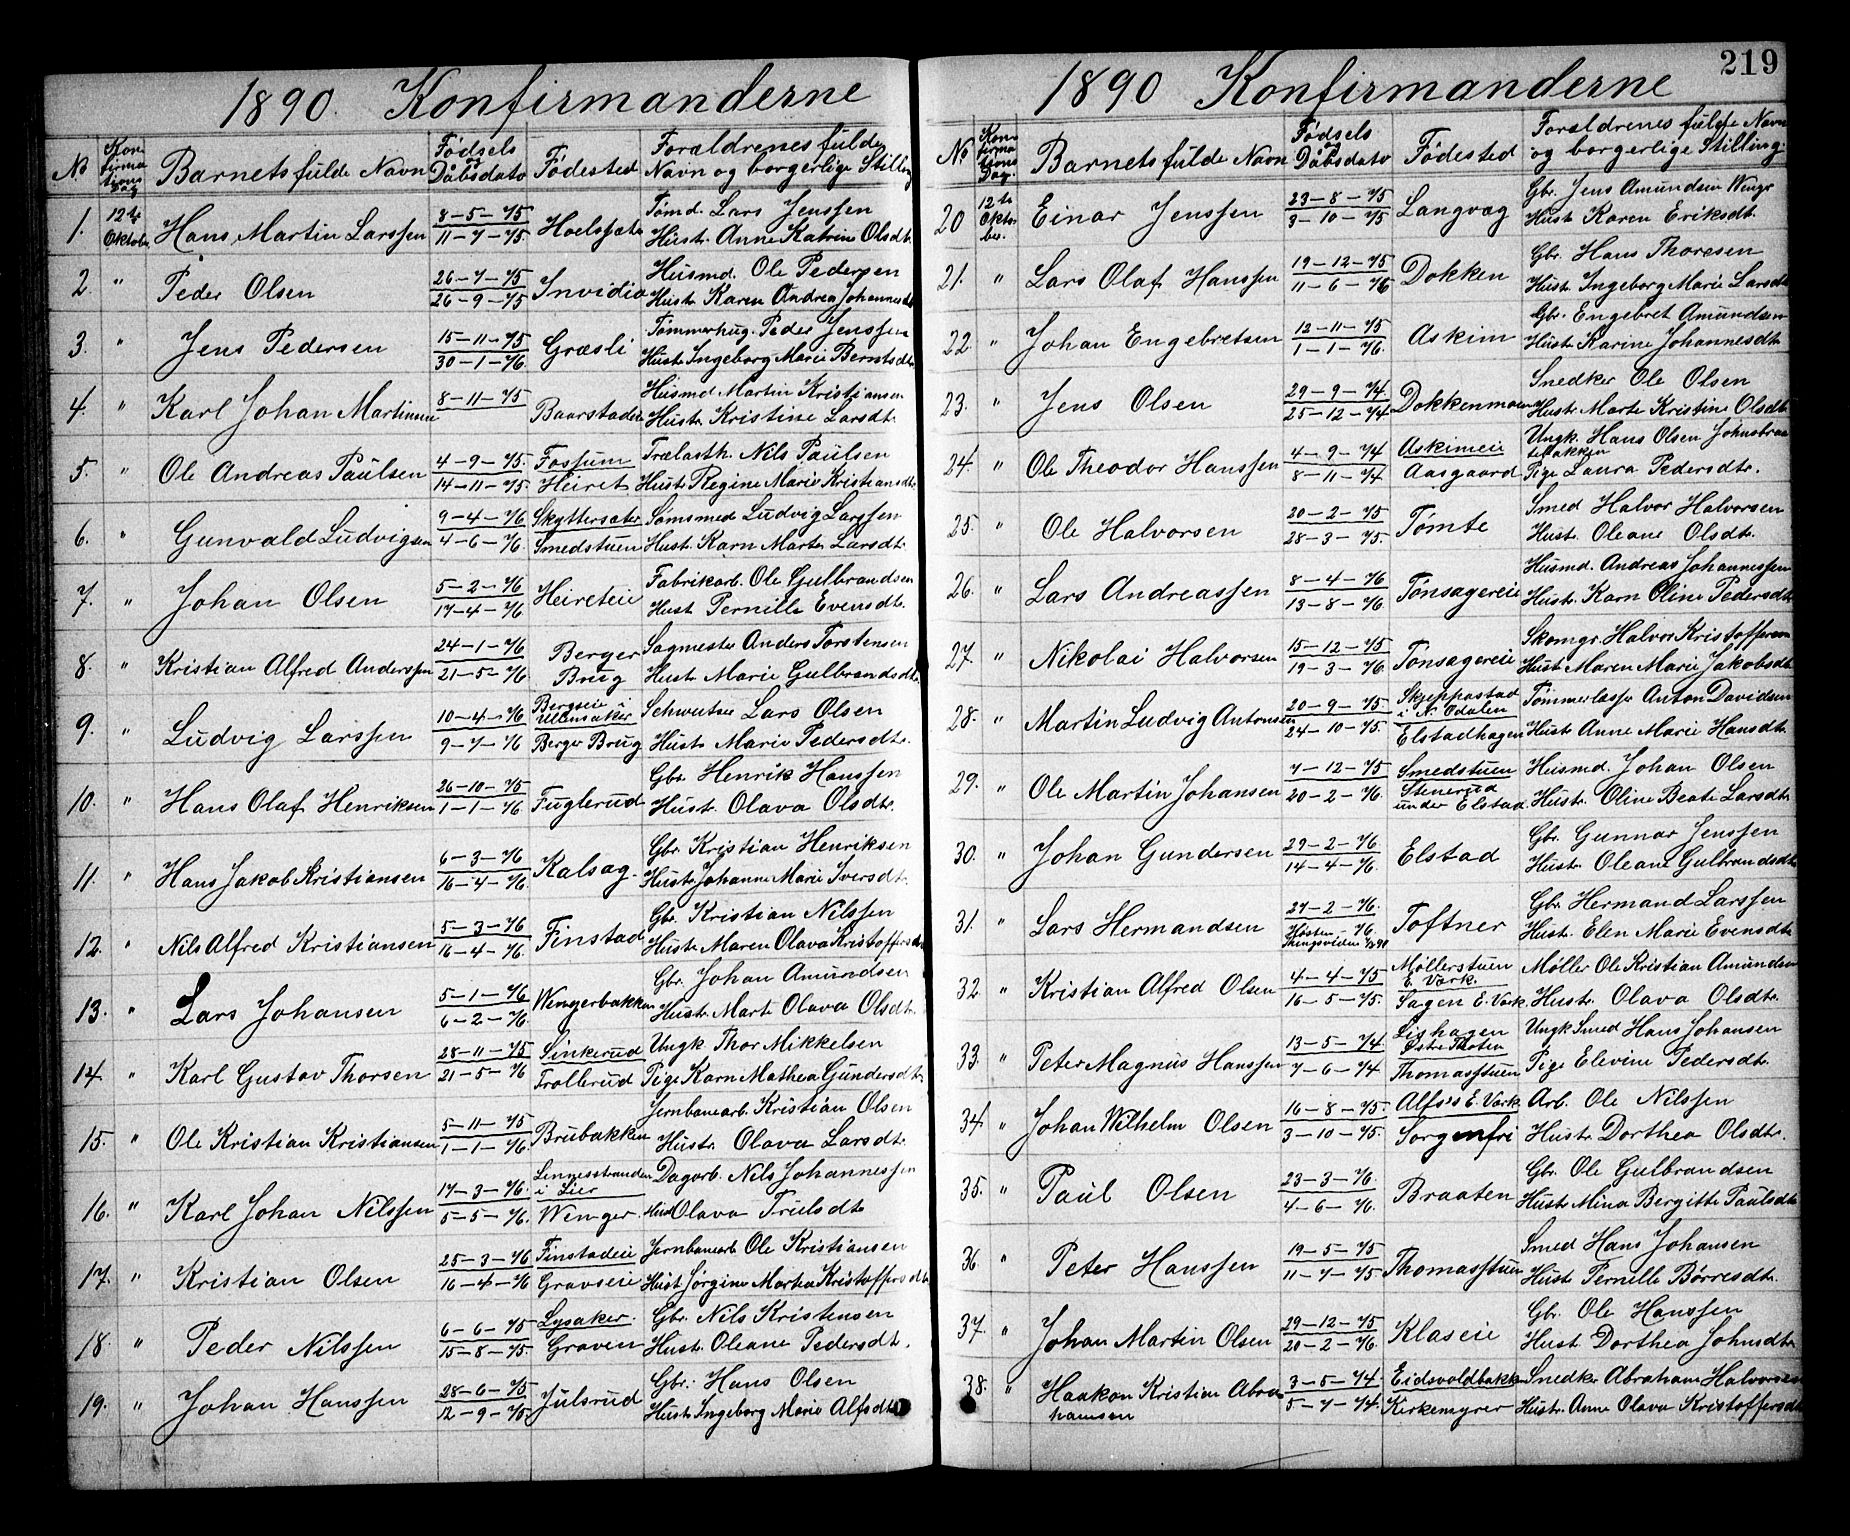 1890. Konfirmanderne
No Konfirmationsdag Barnets fulde Navn Fødsels og Dåbsdato Fødested Forældrenes fulde Navn og borgerlige Stilling
1. 12te Oktobr. Hans Martin Larssen 8-5-75 11-7-75. Hoelssæter Tømd. Lars Jenssen
Hustr. Anne Katrine Olsdt.
2. " Peder Olsen 26-7-75 26-9-75 Invidia Husmd. Ole Pedersen
Hustr. Karen Andrea Johannesdt
3. " Jens Pedersen 15-11-75 30-1-76. Græsli Tømmerhug. Peder Jenssen
Hustr. Ingeborg Marie Berntsdtr
4. " Karl Johan Martinsen 8-11-75 Baarstadeie Husmd Martin Kristiansen
Hustr. Kristine Larsdt.
5. " Ole Andreas Paulsen 4-9-75. 14-11-75. Fossum Heiret Trælasth. Nils Paulsen
Hustr. Regine Marie Kristiansdt
6. " Gunvald Ludvigsen 9-4-76 4-6-76. Skyttersæter Smedstuen Sømsmed Ludvig Larssen
Hust. Karn Marte Larsdt.
7. " Johan Olsen 5-2-76 17-4-76 Heireteie Fabrikarb. Ole Gulbrandsen
Hust Pernille Evensdt.
8. " Kristian Alfred Anderssen 24-1-76 21-5-76 Berger Brug Sagmester Anders Torstensen
Hust Marie Gulbrandsdt
9. " Ludvig Larssen 10-4-76 9-7-76 Bergseie i Ullensaker Berger Brug Schweitser Lars Olsen
Hustr Marie Pedersdt.
10. " Hans Olaf Henriksen 26-10-75 1-1-76 Fuglerud Gbr. Henrik Hanssen
Hustr. Olava Olsdt.
11. " Hans Jakob Kristiansen 6-3-76 16-4-76. Kalsag. Gbr Kristian Henriksen
Hustr Johanne Marie Iversdt.
12. " Nils Alfred Kristiansen 5-3-76 16-4-76. Finstad Gbr. Kristian Nilssen
Hustr Maren Olava Kristoffersdt
13. " Lars Johansen 5-1-76 6-2-76. Wengerbakken Gbr. Johan Amundsen
Hustr Mart Olava Olsdt.
14. " Karl Gustav Thorsen 28-11-75 21-5-76 Sinkerud Trollerud Ungk Thor Mikkelsen
Pige Karn Mathea Gundersdt.
15. " Ole Kristian Kristiansen 5-11-75 1-1-76. Brubakken Jernbanearb. Kristian Olsen
Hustr. Olava Larsdt.
16. " Karl Johan Nilssen 17-3-76. 5-5-76. Linnesstranden i Lier Wenger. Dagarb. Nils Johannessen
Hust Olava Trulsdt
17. " Kristian Olsen 25-3-76 16-4-76 Finstadeie Gravseie Jernbanearb Ole Kristiansen
Hust Jørgine Martea Kristoffersdt
18. " Peder Nilssen 6-6-75 15-8-75 Lysaker. Graven Gbr. Nils Kristensen
Hustr. Oleane Pedersdt.
19. " Johan Hanssen 28-6-75 12-9-75. Julsrud Gbr. Hans Olsen
Hustr Ingeborg Marie Alfsdt
219
1890 Konfirmanderne
No Konfirmations Dag. Barnets fulde Navn Fødsels og Dåbsdato Fødested Forældrenes fulde Navn og borgerlige Stilling.
20 12te Oktober. Einar Jenssen 23-8-75 3-10-75 Langvag Gbr. Jens Amundsen Wenger
Hust Karen Eriksdt.
21. " Lars Olaf Hanssen 19-12-75 11-6-76 Dokken Gbr. Hans Thoresen
Hust. Ingeborg Marie Larsdt.
22. " Johan Engebretsen 12-11-75 1-1-76. Askim Gbr. Engebret Amundsen
Hustr. Karine Johannesdt.
23. " Jens Olsen 29-9-74 25-12-74 Dokkenmoen Snedker Ole Olsen
Hustr. Marte Kristine Olsdt.
24. " Ole Theodor Hanssen 4-9-74 8-11-74 Askimeie Aasgaard Ungk. Hans Olsen
Pige Laura Pedersdtr.
25. " Ole Halvorsen 20-2-75 28-3-75. Tømte Smed Halvor Halvorsen
Hust. Oleane Olsdt.
26. " Lars Andreassen 8-4-76 13-8-76. Tønsagereie Husmd. Andreas Johannessen
Hustr. Karn Oline Pedersdt.
27. " Nikolai Halvorsen 15-12-75 19-3-76 Tønsagereie Skomgr. Halvor Kristoffersen
Hust Maren Marie Jakobsdt.
28. " Martin Ludvig Antonsen 20-9-75 24-10-75. Skjeppastad i N. Odalen Elstadhagen Tømmerlæsser Anton Davidsen
Hust Anne Marie Hansdt.
29. " Ole Martin Johansen 7-12-75 20-2-76. Smedstuen Stenerud under Elstad Husmd. Johan Olsen
Hustr. Oline Beate Larsdt.
30. " Johan Gundersen 29-2-76 14-4-76. Elstad Gbr. Gunnar Jenssen
Hustr. Oleane Gulbrandsdt.
31. " Lars Hermandsen 27-2-76. Høsten 76. Toftner Gbr Hermand Larssen
Hust. Elen Marie Evensdt.
32. " Kristian Alfred Olsen 4-4-75 16-5-75. Møllerstuen E. Værk. Sagen E. Værk Møller Ole Kristian Amundsen
Hustr. Olava Olsdt.
33. " Peter Magnus Hanssen 13-5-74 7-6-74 Lishagen Østre Thoten Thomasstuen Ungk Smed Hans Johansen
Pige Elevine Pedersdt.
34. " Johan Wilhelm Olsen 16-8-75. 3-10-75. Alfs's E. Værk. Sorgenfri Arb. Ole Nilssen
Hustr Dorthea Olsdt.
35. " Paul Olsen 23-3-76. 4-6-76. Braaten Gbr. Ole Gulbrandsen
Hustr Mina Bergitte Paulsdt.
36. " Peter Hanssen 19-5-75 11-7-75 Thomasstuen Smed Hans Johansen
Hustr Pernille Børresdt.
37. " Johan Martin Olsen 29-12-75 20-2-76. Klaseie Gbr. Ole Hanssen
Hust Dorthea Johnsdt.
38. " Haakon Kristian Abrahamsen 3-5-74. 5-7-74. Eidsvoldbakken Kirkemyrer Snedkr Abraham Halvorsen
Hustr. Anne Olava Kristoffersdt